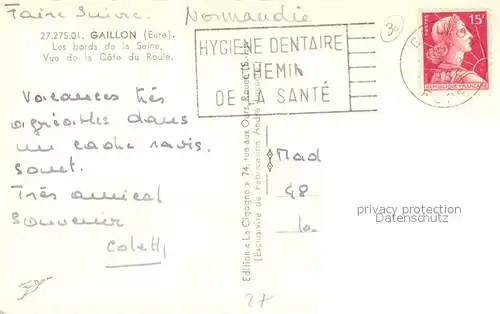 Faire Suivre. Normandie
30
27.275.01. GAILLON (Eure).
Les bords de la Seine,
Vue de la Côte du Roule.
HYGIENE DENTAIRE
CHEMIN
DE LA SANTÉ
POSTES 15F
REPUBLIQUE FRANÇAISE
Vacances très
agréables dans
un cadre ravis.
sant.
Très amical
souvenir
Colett
Edition « La Cigogne » 74, rue aux Ours Rouen
(Exclusivité de Fabrication André
Mad
48
la
27
privacy protection
Datenschutz